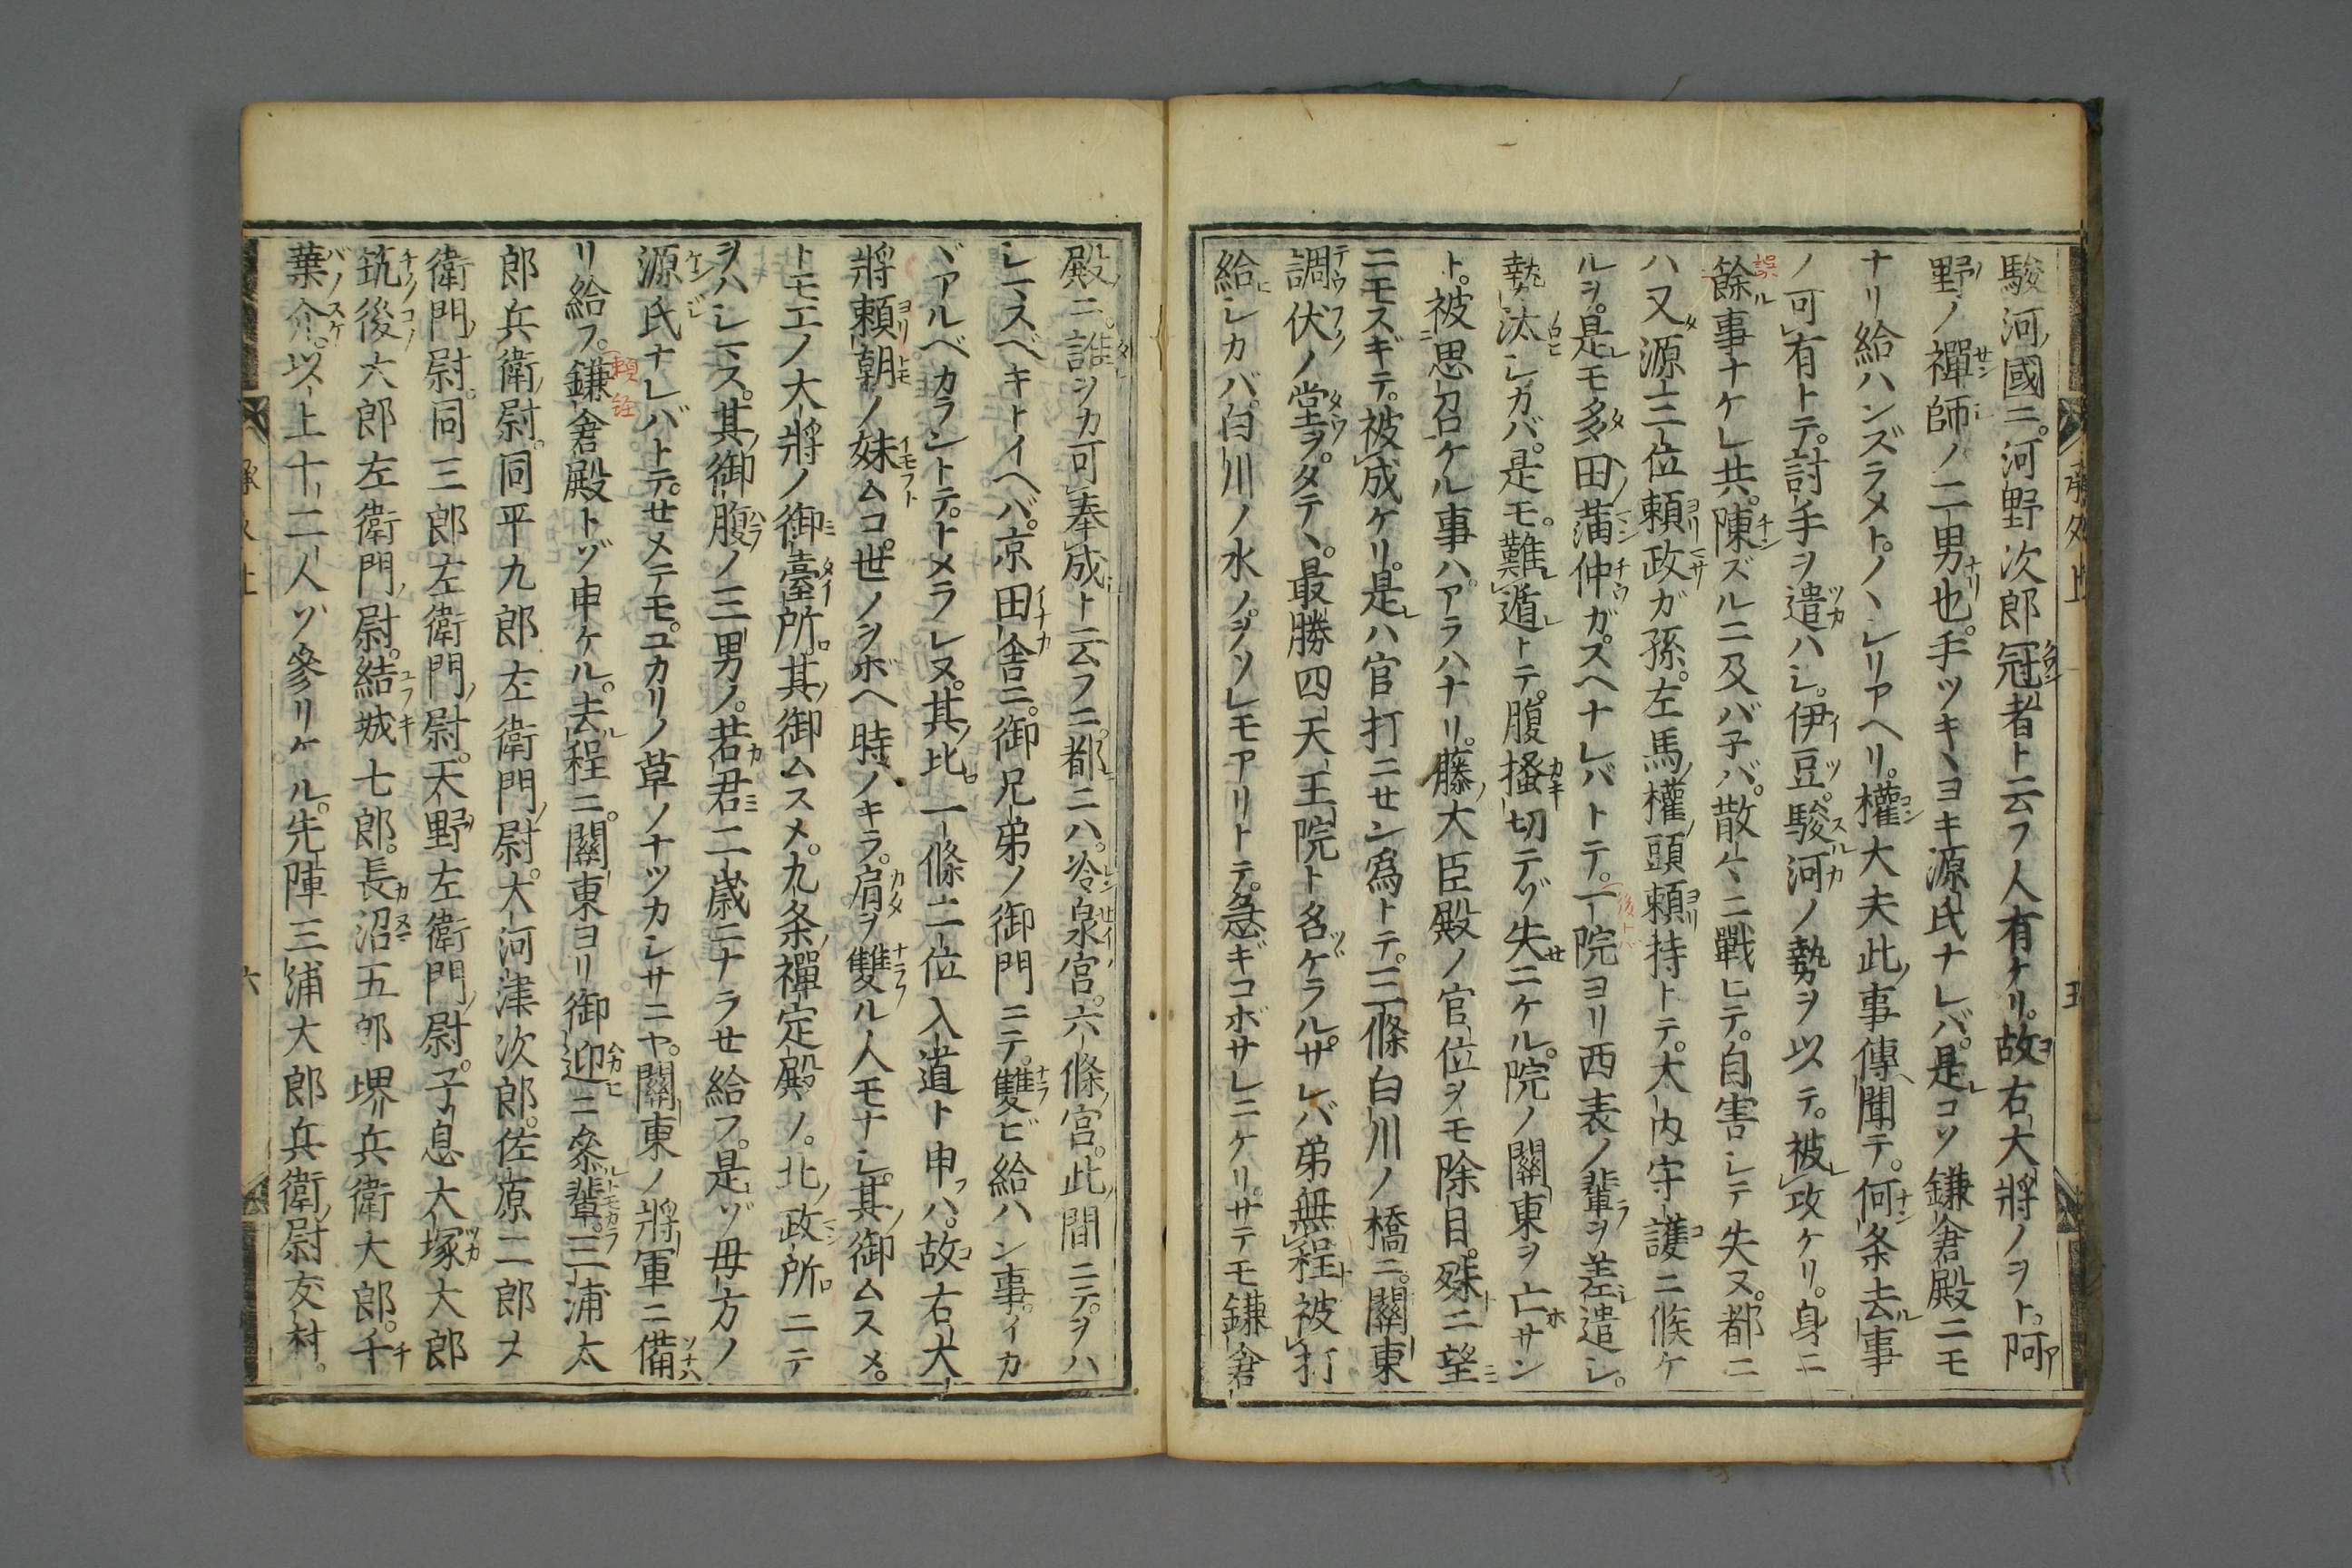 駿河ノ國ニ。河野次郎冠者ト云フ人有ケリ。故右大將ノヲト。阿
野ノ禪師ノ二男也。手ツキヽヨキ源氏ナレバ。是コソ鎌倉殿ニモ
ナリ給ハンズラメト。ノヽシリアヘリ。權大夫此ノ事傳ヘ聞テ。何条去ル事
ノ可有トテ。討手ヲ遣ハシ。伊豆。駿河ノ勢ヲ以テ。被攻ケリ。身ニ
餘ル事ナケレ共。陳ズルニ及バ子バ。散々ニ戰ヒテ。自害シテ失ヌ。都ニ
ハ又源三位頼政ガ孫。左馬ノ權ノ頭頼持トテ。大内守護ニ候ケ
ルヲ。是レモ多田ノ蒲仲ガ。スヘナレバトテ。一院ヨリ西表ノ輩ラヲ差シ遣シ。
勢汰シカバ。是モ。難遁レトテ。腹搔切テゾ失セニケル。院ノ關東ヲ亡サン
ト。被思召ケル事ハ。アラハナリ。藤ノ大臣殿ノ官位ヲモ除目。殊ニ望ミ
ニモスギテ。被成ケリ。是レハ官打ニセン爲トテ。三條白川ノ橋ニ。關東
調伏ノ堂ヲ。タテヽ。最勝四天王院ト名ヅケラル。サレバ弟無程被打
給ヒシカバ。白川ノ水ノ。ヲソレモアリトテ。急ギコボサレニケリ。サテモ鎌倉
殿ニ。誰ヲカ可奉成ト云フニ。都ニハ。冷泉ノ宮。六條ノ宮。此ノ間ニテ。ヲハ
シマスベキトイヘバ。京田舎ニ。御兄弟ノ御門ニテ。雙ビ給ハン事。イカ
ヾアルベカラントテ。トメラレヌ。其ノ比。一條二位入道ト申フハ。故右大
將頼朝ノ妹ムコ。世ノヲボヘ時ノキラ。肩ヲ雙ル人モナシ。其ノ御ムスメ。
トモエノ大將ノ御臺所。其ノ御ムスメ。九条ノ禪定殿ノ。北ノ政所ニテ
ヲハシマス。其ノ御腹ノ三男ノ。若君二歳ニナラセ給フ。是ゾ母方ノ
源氏ナレバトテ。セメテモ。ユカリノ草ノナツカシサニヤ。關東ノ將軍ニ備
リ給フ。鎌倉殿トゾ申ケル。去ル程ニ。關東ヨリ御迎ニ參ル輩。三浦太
郎兵衛ノ尉。同平九郎左衛門ノ尉。大河津次郎。佐原二郎ヌ
衛門ノ尉。同三郎左衛門ノ尉。天野左衛門ノ尉。子息大塚太郎
筑後六郎左衛門ノ尉。結城七郎。長沼五郎堺兵衛太郎。千
葉介。以上十二人ゾ參リケル。先陣三浦太郎兵衛ノ尉友村。